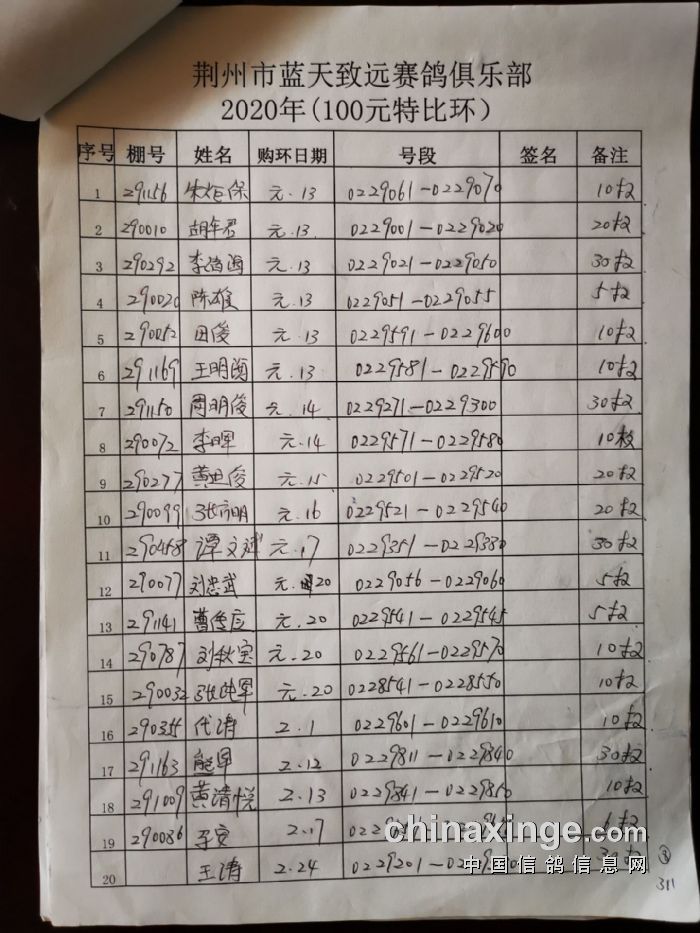 荆州市蓝天致远赛鸽俱乐部
2020年(100元特比环)
序号 棚号 姓名 购环日期 号段 签名 备注
1 291156 朱炬保 元.13 0229061-0229070 10枚
2 290010 胡年君 元.13 0229001-0229020 20枚
3 290292 李 元.13 0229021-0229050 30枚
4 290020 陈雄 元.13 0229051-0229055 5枚
5 290052 田俊 元.13 0229591-0229600 10枚
6 291169 王明 元.13 0229581-0229590 10枚
7 291150 周明俊 元.14 0229271-0229300 30枚
8 290072 李晖 元.14 0229571-0229580 10枚
9 290277 黄思俊 元.15 0229501-0229520 20枚
10 290099 张明 元.16 0229521-0229540 20枚
11 290458 谭文斌 元.17 0229351-0229380 30枚
12 290077 刘忠武 元.20 0229056-0229060 5枚
13 291141 曹应 元.20 0229541-0229545 5枚
14 290787 刘秋宝 元.20 0229561-0229570 10枚
15 290032 张纯军 元.20 0228541-0228550 10枚
16 290355 代涛 2.1 0229601-0229610 10枚
17 291163 熊军 2.12 0229811-0229840 30枚
18 291009 黄清悦 2.13 0229841-0229850 10枚
19 290086 2.17 枚
20 王涛 2.24 0229201- 30枚
chinaxinge.com
中国信鸽信息网
311